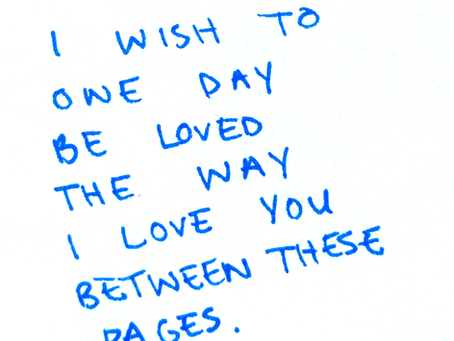 I WISH TO
ONE DAY
BE LOVED
THE WAY
I LOVE YOU
BETWEEN THESE
PAGES.